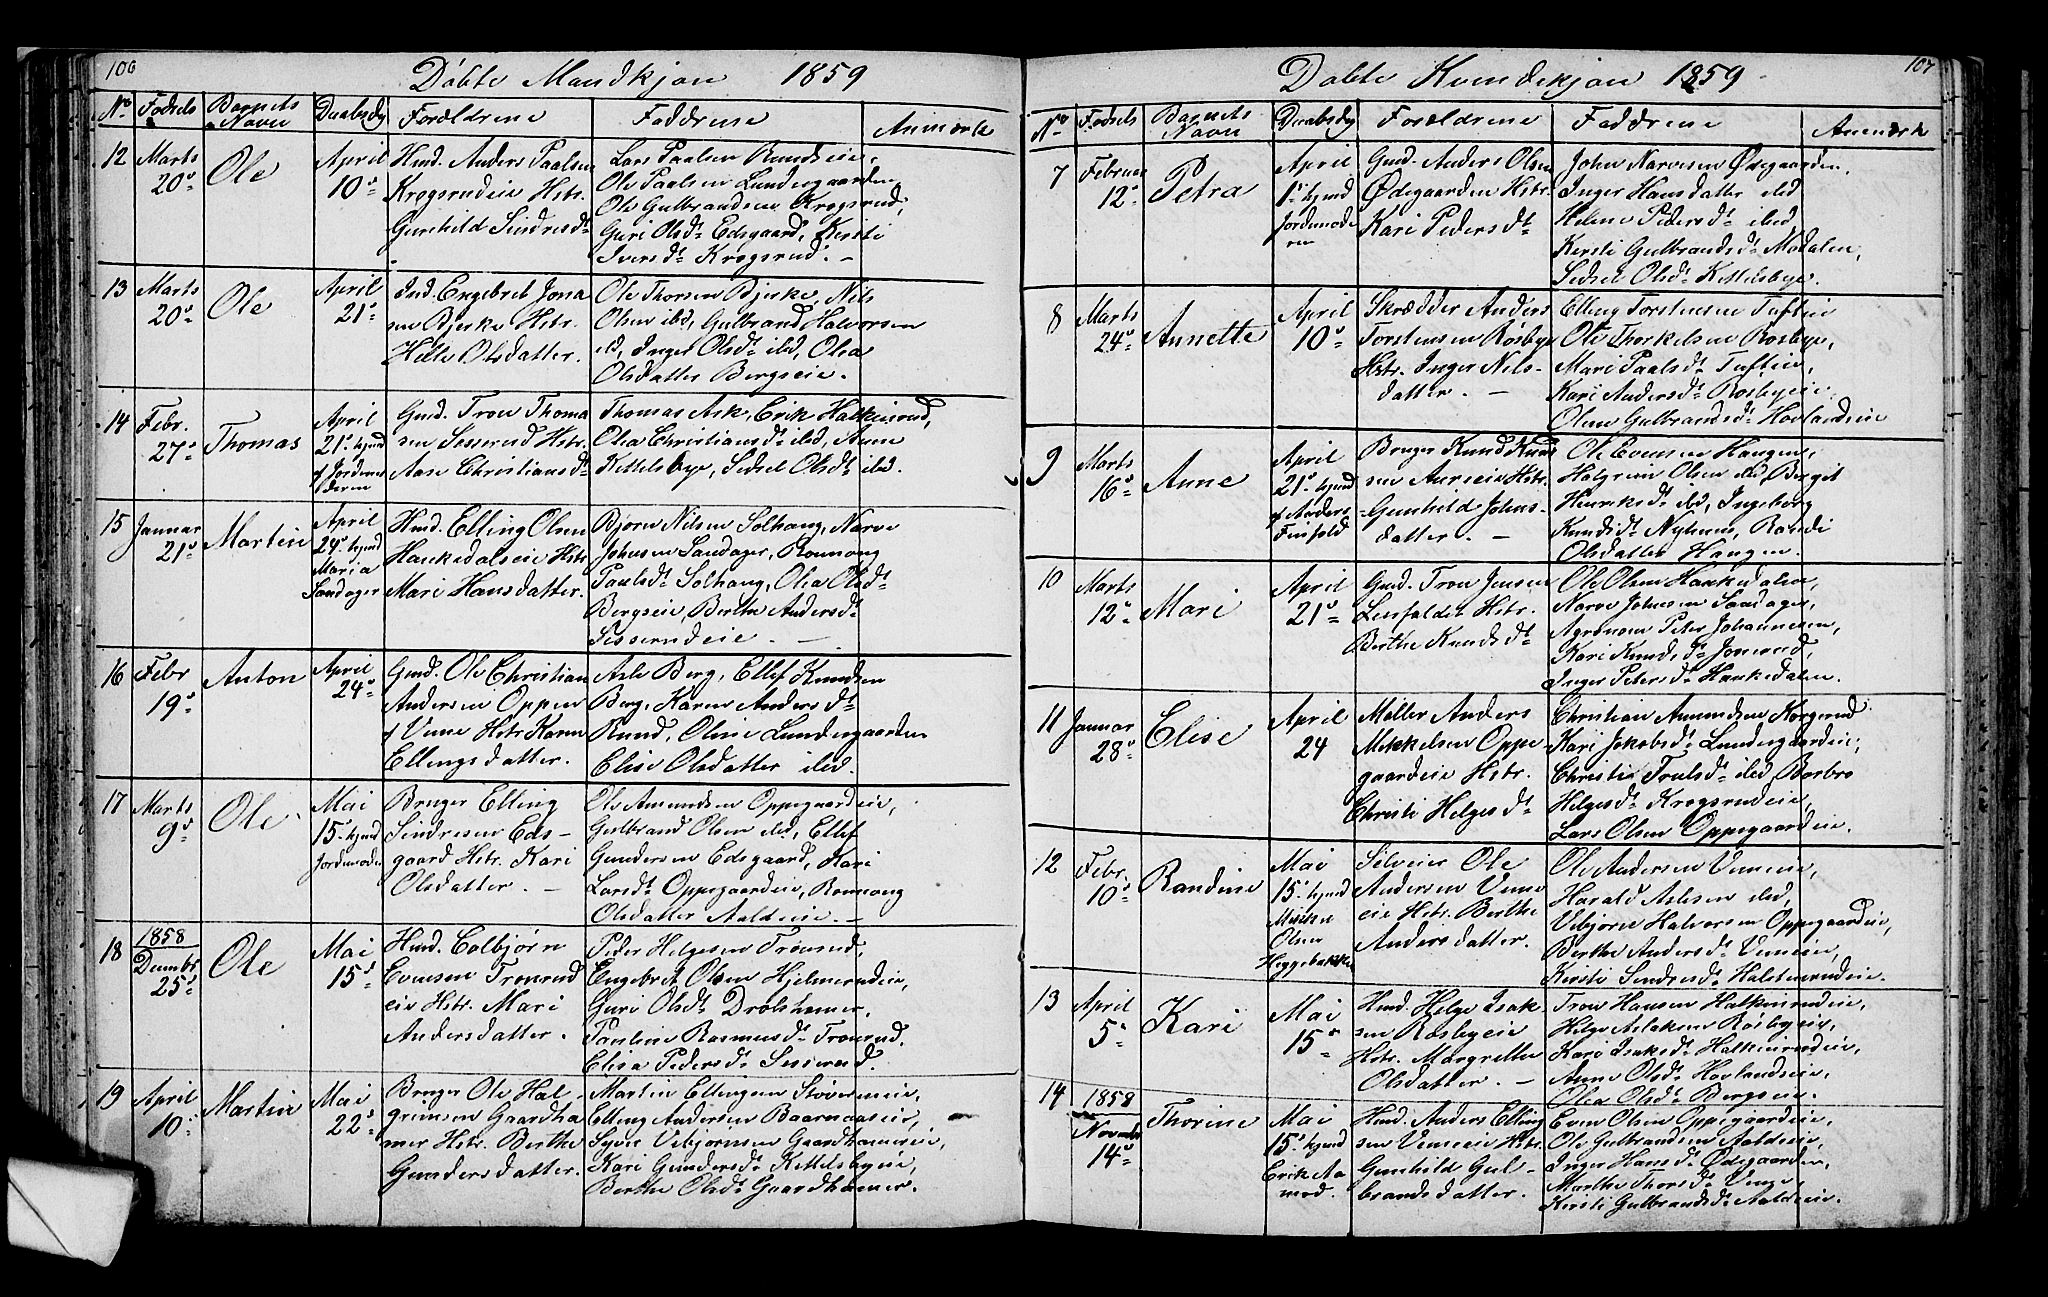 106
Döbte Mandkjøn 1859
No Fødsels Barnets Navn Daabsdg Forældrene Faddrene Anmærk
12 Marts 20de Ole April 10de
Hmd. Anders Paalsen
Krogsrudeie Hstr.
Gunhild Sindresdt.
Lars Paalsen Rundseie,
Ole Paalsen Lundergaarden
Ole Gulbrandsen Krogsrud,
Guri Olsdt. Edsgaard, Kirsti
Iversdt. Krogsrud. –
13 Marts 20de Ole April 21de
Ind. Engebret Jona
sen Bjerke Hstr.
Helle Olsdatter.
Ole Thorsen Bjerke, Nils
Olsen ibd, Gulbrand Halvorsen
ibd, Inger Olsdt. ibd, Olea
Olsdatter Bergseie.
14 Febr. 27de Thomas
April
21de hjmd
af Jordemo
deren
Gmd. Tron Thoma
sen Sesserud Hstr.
Aase Christiansdt.
Thomas Ask, Erik Halkinrud,
Olea Christiansdt. ibd, Anne
Kittelsbye, Sidsel Olsdt. ibd.
15 Januar 21de Martin
April
24de hjmd
Maria
Sandager
Hmd. Elling Olsen
Hankedalseie Hstr.
Mari Hansdatter.
Bjørn Nilsen Solhaug, Narve
Johnsen Sandager, Ronnaug
Paulsdt. Solhaug, Olea Olsdt.
Bergseie, Berthe Andersdt.
Sesserudeie. –
16 Febr 19de Anton April 24de
Gmd. Ole Christian
Andersen Oppen
af Veme Hstr. Karen
Ellingsdatter.
Asle Berg, Ellef Knudsen
Berg, Karen Andersdt.
Rund, Oline Lundergaarden
Elise Olsdatter ibd.
17 Marts 9de Ole
Mai
15de hjmd
Jordemoder
Bruger Elling
Sindresen Eds-
gaard Hstr. Kari
Olsdatter. –
Ole Amundsen Oppegaardeie,
Gulbrand Olsen ibd, Ellef
Gundersen Edsgaard, Kari
Larsdt. Oppegaardeie, Ronnaug
Olsdatter Aaldeie. –
18 1858
Decmbr. 25de Ole Mai 15de
Hmd. Colbjørn
Evensen Tronrud
eie Hstr. Mari
Andersdatter.
Peder Helgesen Tronrud,
Engebret Olsen Hjelmerudeie,
Guri Olsdt. Drolshamer,
Pauline Rasmusdt. Tronrud.
Elise Pedersdt. Sesserud.
19 April 10de Martin Mai 22de
Bruger Ole Hal-
grimsen Gaardha
mer Hstr. Berthe
Gundersdatter.
Martin Ellingsen Støverneie,
Elling Andersen Baarnaaseie,
Syver Vebjørnsen Gaardhamereie,
Kari Gundersdt. Kittelsbyeie,
Berthe Olsdt. Gaardhamer.
107
Dobte Kvindekjøn 1859
No Fødsels Barnets Navn Daabsdg Forældrene Faddrene Anmærk
7 Februar 12de Petra
April
1de hjmd
Jordemode
ren
Gmd. Anders Olsen
Ødegaarden Hstr.
Kari Pedersdt.
John Narvesen Ødegaarden,
Inger Hansdatter ibd,
Helene Pedersdt. ibed,
Kersti Gulbrandsdt. Modalen,
Sidsel Olsdt. Kittelsbye.
8 Marts 24de Annette April 10de
Skrædder Anders
Torstensen Rösbye
Hstr. Inger Nils-
datter. –
Elling Torstensen Tuftin
Ole Thorkelsen Rosbye,
Mari Paalsdt. Tuftin,
Kari Andersdt. Rosbyeie,
Olene Gulbrandsdt. Hovlandseie
9 Marts 16de Anne
April
21de hjmd
af Anders
Finsfold
Bruger Knud Knud
sen Aureeie Hstr.
Gunhild Johns-
datter. –
Ole Evensen Haugen,
Halgrim Olsen ibd, Bergit
Henriksdt. ibd, Ingeborg
Knudsdt. Nyhuus, Randi
Olsdatter Haugen.
10 Marts 12de Mari April 21de
Gmd. Tron Jensen
Leersfaldet Hstr.
Berthe Knudsdt.
Ole Olsen Hankedalen,
Narve Johnsen Sandager,
Agronom Peter Johannesen,
Kari Knudsdt. Jonsrud,
Inger Petersdt. Hankedalen.
11 Januar 28de Elise April 24
Møller Anders
Mikkelsen Oppe
gaardeie Hstr.
Christi Helgesdt.
Christian Amundsen Korgerud
Kari Jakobsdt. Lundergaardeie,
Christie Trulsdt. ibd, Borbro
Helgesdt. Krogsrudeie,
Lars Olsen Oppegaardeie.
12 Febr. 10de Randine
Mai
15de hjmd
Mikkel
Olsen
Heggebakke
Selveier Ole
Andersen Veme
eie Hstr. Berthe
Andersdatter.
Ole Andersen Vemeeie,
Harald Aslesen ibd,
Vebjørn Halvorsen Oppegaardeie,
Berthe Andersdt. Vemeeie,
Kirsti Sindresdt. Halstenrudeie.
13 April 5de Kari Mai 15de
Hmd. Helge Isak-
sen Rösbyeeie
Hstr. Margrethe
Olsdatter. –
Tron Hansen Halkinrudeie,
Helge Aslaksen Rösbyeie,
Kari Isaksdt. Halkinrudeie,
Anne Olsdt. Hovlandseie,
Olea Olsdt. Bergseie.
14 1858
Novmbr. 14de Thorine
Mai
15de hjmd
Erik Aa
mod.
Hmd. Anders Elling
sen Vemeeie Hstr.
Gunhild Gul-
brandsdatter.
Even Olsen Oppegaardeie,
Ole Gulbrandsen Aaldeie,
Inger Hansdt. Ødegaarden,
Marthe Thorsdt. Venge,
Kirsti Gulbrandsdt. Aaldeie.